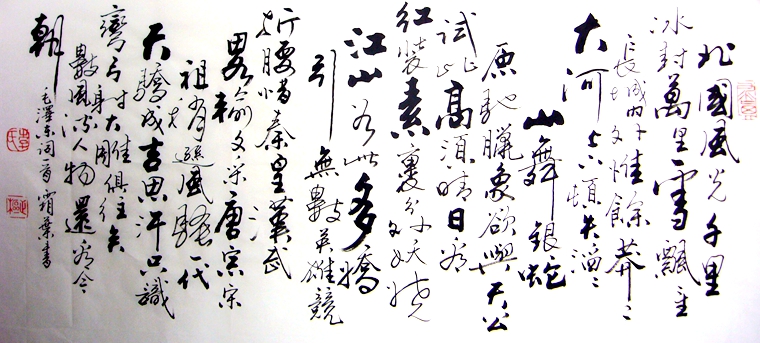 北國風光千里
冰封萬里雪飄望
長城內外惟餘莽〻
大河上下頓失滔〻
山舞銀蛇
原馳臘象欲與天公
試比高須晴日看
紅裝素裹分外妖嬈
江山如此多嬌
引無數英雄競
折腰惜秦皇漢武
畧輸文采唐宗宋
祖稍遜風騷一代
天驕成吉思汗只識
彎弓射大雕俱往矣
數風流人物還看今
朝
毛澤東詞一首 霜葉書